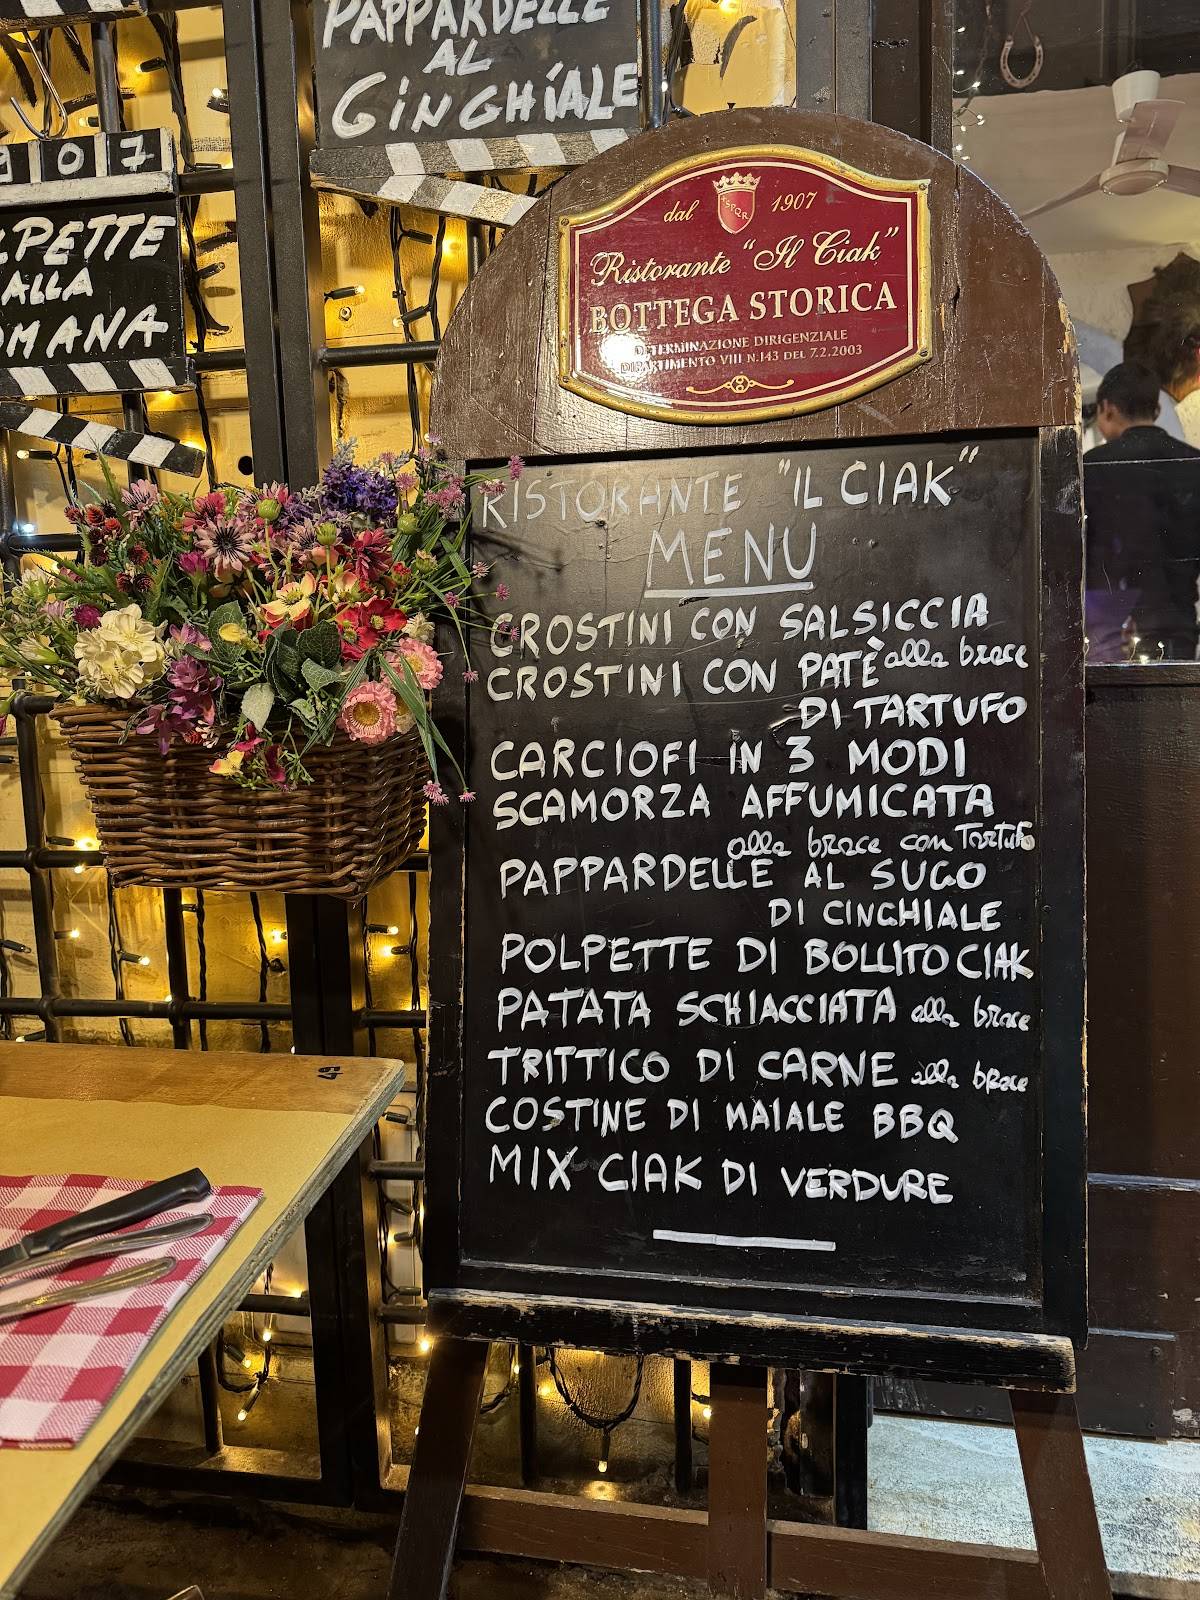 PAPPARDELLE
AL
CINGHIALE
907
LPETTE
ALLA
OMANA
dal 1907
SPQR
Ristorante "Il Ciak"
BOTTEGA STORICA
DETERMINAZIONE DIRIGENZIALE
DIPARTIMENTO VIII N.143 DEL 7.2.2003
RISTORANTE "IL CIAK"
MENU
CROSTINI CON SALSICCIA
alla brace
CROSTINI CON PATÈ
DI TARTUFO
CARCIOFI IN 3 MODI
SCAMORZA AFFUMICATA
alla brace con Tartufo
PAPPARDELLE AL SUGO
DI CINGHIALE
POLPETTE DI BOLLITO CIAK
PATATA SCHIACCIATA alla brace
TRITTICO DI CARNE alla brace
COSTINE DI MAIALE BBQ
MIX CIAK DI VERDURE
49